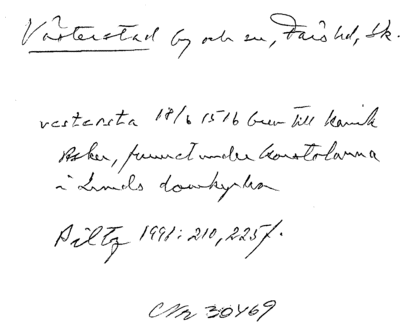 Västerstad by och sn, Färs hd, Sk.
vestersta 18/6 1516 brev till kanik
Asker, funnet under korstolarna
i Lunds domkyrka
Piltz 1998: 210, 225f.
30469